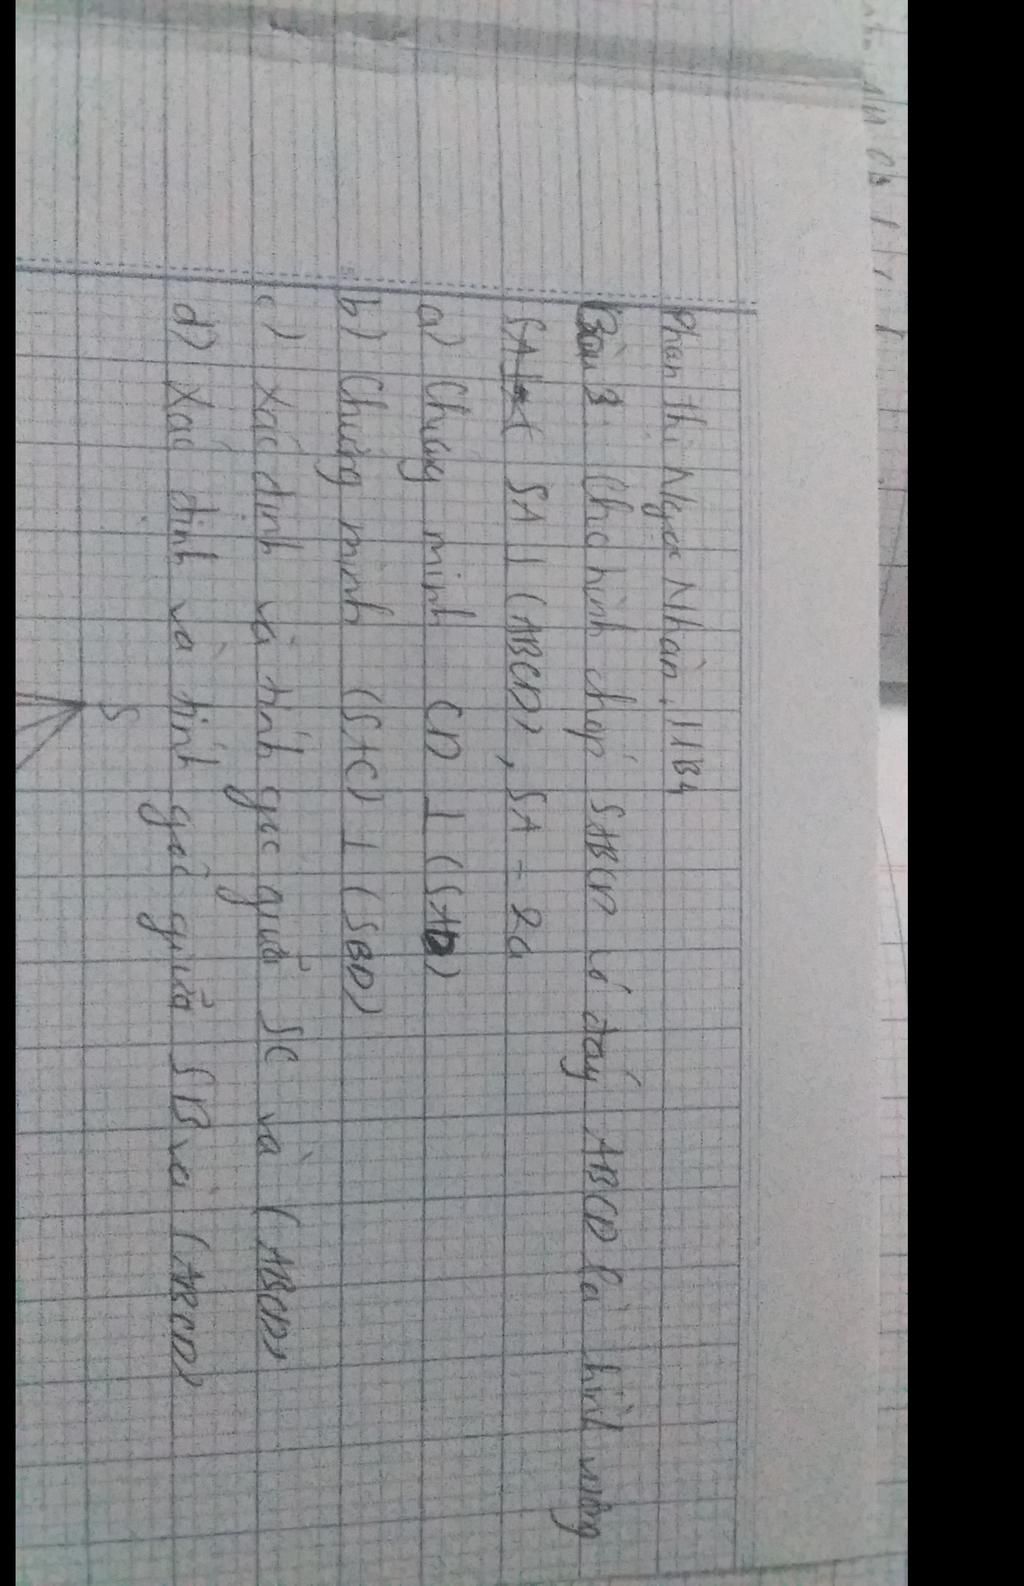 Phan thị Ngọc Nhàn, 11B4
Bài 3: Cho hình chóp SABCD có đáy ABCD là hình vuông
SA ⊥ (ABCD), SA = 2a
a) Chứng minh CD ⊥ (SAD)
b) Chứng minh (SAC) ⊥ (SBD)
c) Xác định và tính góc giữa SC và (ABCD)
d) Xác định và tính góc giữa SB và (ABCD)
S